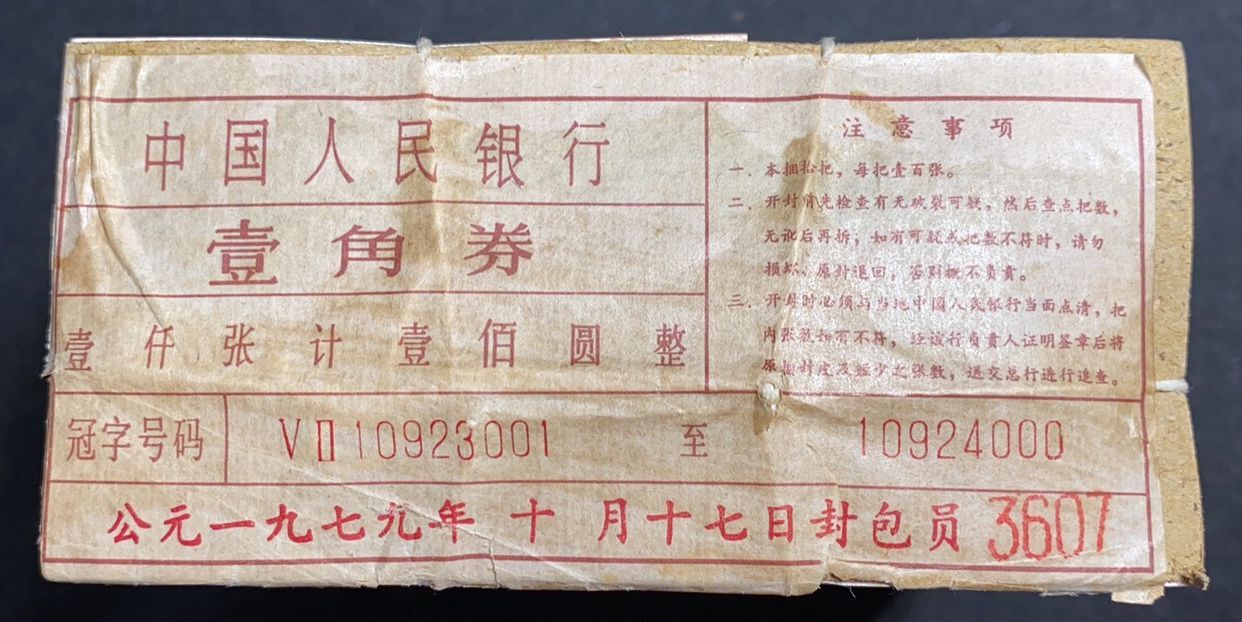 中国人民银行
壹角券
壹仟张计壹佰圆整
注意事项
一．本捆拾把，每把壹百张。
二．开封前先检查有无破裂可疑，然后查点把数，
无讹后再拆；如有可疑或把数不符时，请勿
损坏、原封退回，否则概不负责。
三．开封时必须与当地中国人民银行当面点清，把
内张数如有不符，经该行负责人证明签章后将
原捆封皮及短少之张数，送交总行进行追查。
冠字号码 VII10923001 至 10924000
公元一九七九年十月十七日封包员 3607